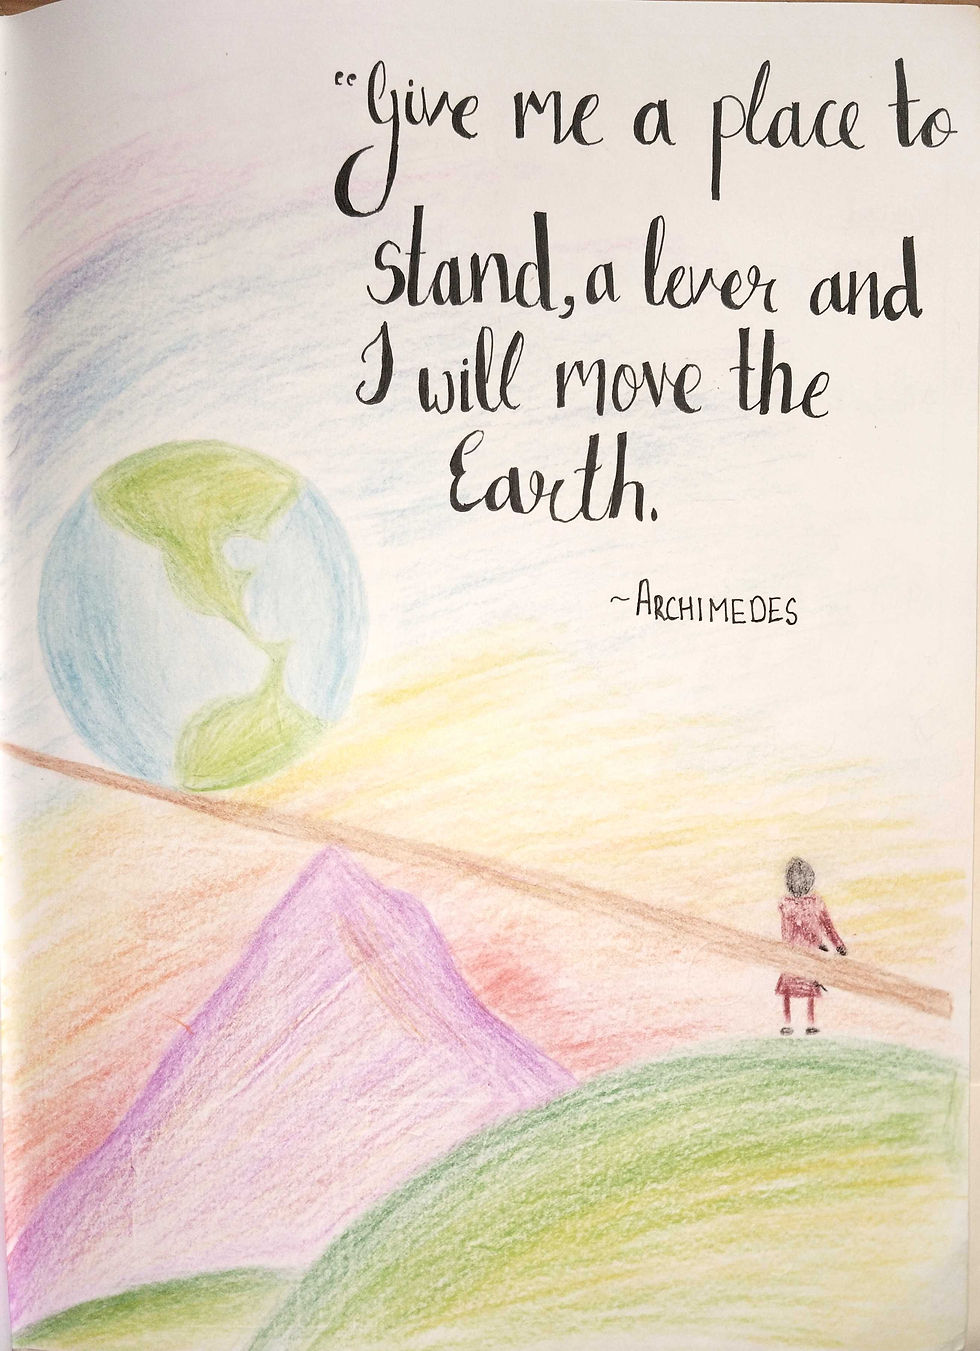 “Give me a place to
stand, a lever and
I will move the
Earth.
~ARCHIMEDES